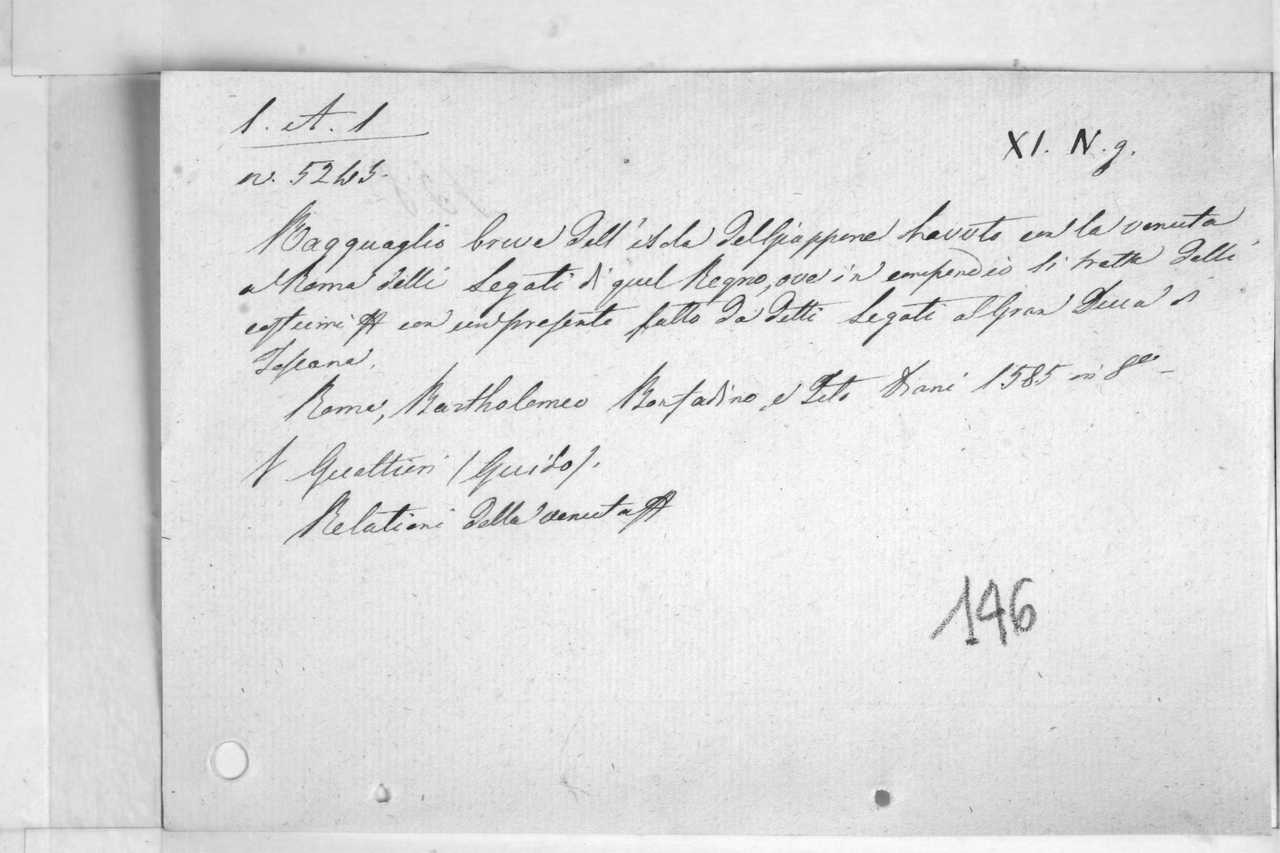 1. et. 1
XI. N. g.
n. 5245.
Ragguaglio breve dell'isola del Giappone havuto con la venuta
a Roma delli Legati di quel Regno, ove in compendio si tratta delli
costumi con un presente fatto da detti Legati al Gran Duca di
Toscana.
Roma, Bartholomeo Bonfadino, e Tito Diani 1585 in 8°
Gualtieri (Guido).
Relationi della venuta
146